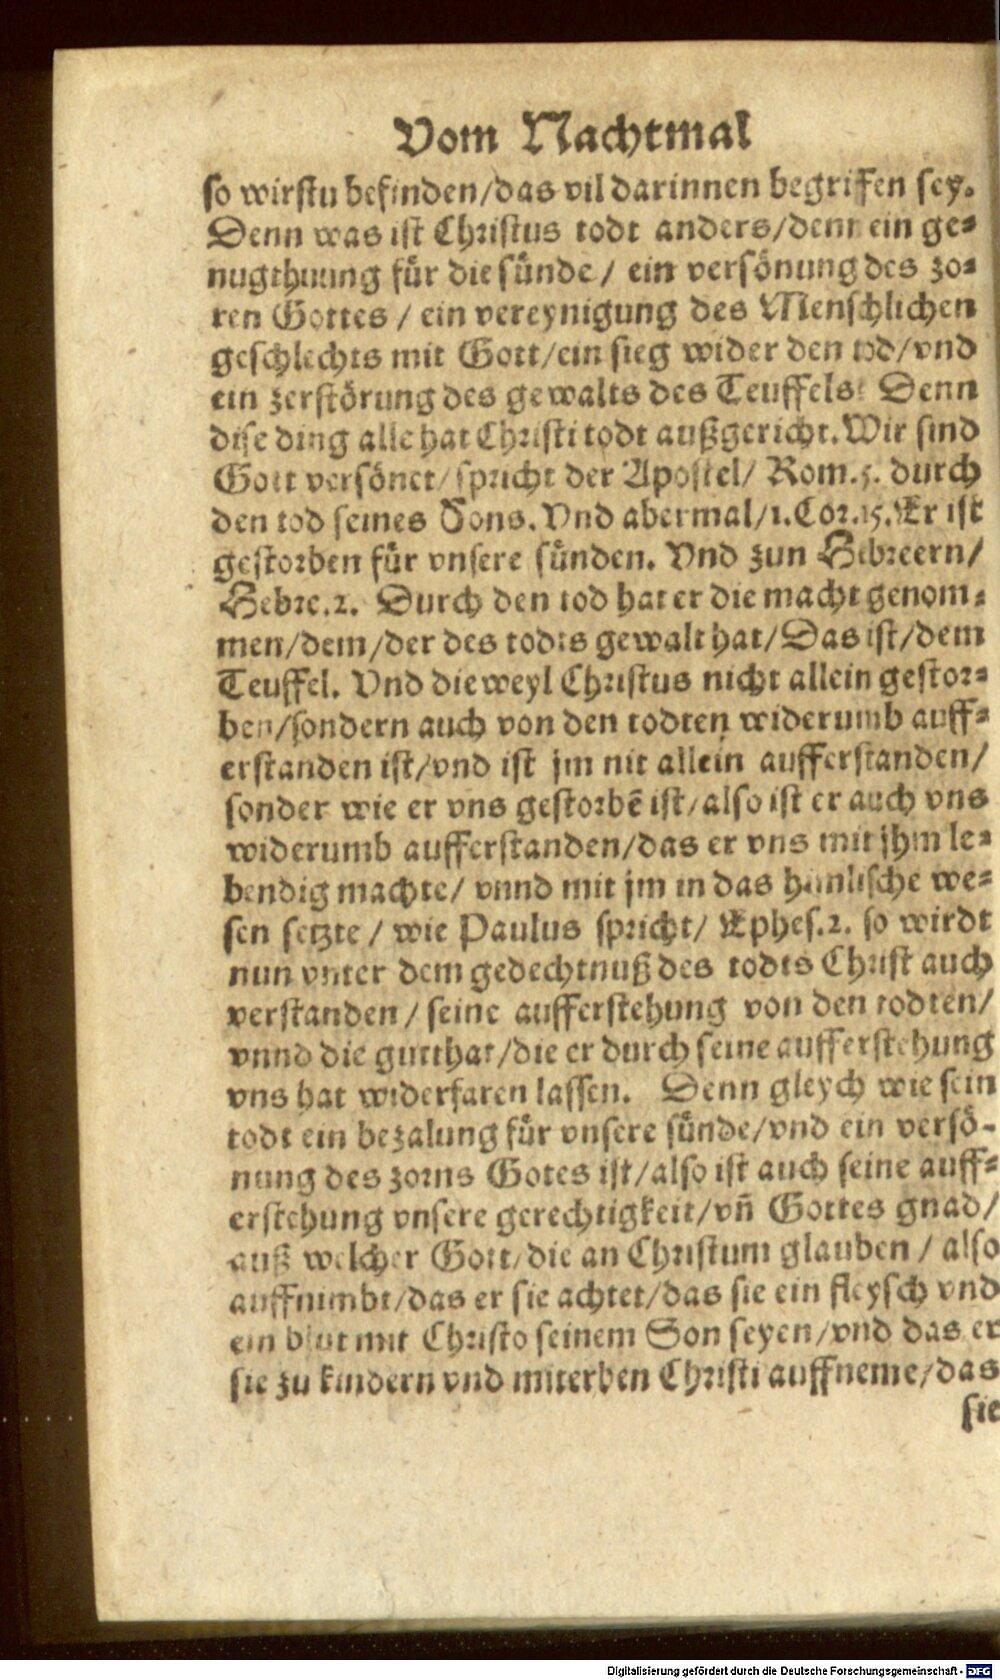 Vom Nachtmal
so wirstu befinden/das vil darinnen begriffen sey.
Denn was ist Christus todt anders/denn ein ge⸗
nugthuung für die sünde/ ein versönung des zo⸗
ren Gottes / ein vereynigung des Menschlichen
geschlechts mit Gott/ein sieg wider den tod/vnd
ein zerstörung des gewalts des Teuffels: Denn
dise ding alle hat Christi todt außgericht. Wir sind
Gott versönet/spricht der Apostel/ Rom.5. durch
den tod seines Sons. Vnd abermal/1.Cor.15. Er ist
gestorben für vnsere sünden. Vnd zun Hebreern/
Hebre.2. Durch den tod hat er die macht genom⸗
men/dem/der des todts gewalt hat/Das ist/dem
Teuffel. Vnd dieweyl Christus nicht allein gestor⸗
ben/sondern auch von den todten widerumb auff⸗
erstanden ist/vnd ist jm nit allein aufferstanden/
sonder wie er vns gestorbē ist/also ist er auch vns
widerumb aufferstanden/das er vns mit jhm le⸗
bendig machte/ vnnd mit jm in das himlische we⸗
sen setzte / wie Paulus spricht/ Ephes.2. so wirdt
nun vnter dem gedechtnuß des todts Christ auch
verstanden / seine aufferstehung von den todten/
vnnd die gutthat/die er durch seine aufferstehung
vns hat widerfaren lassen. Denn gleych wie sein
todt ein bezalung für vnsere sünde/vnd ein versö⸗
nung des zorns Gotes ist/also ist auch seine auff⸗
erstehung vnsere gerechtigkeit/vñ Gottes gnad/
auß welcher Gott/die an Christum glauben / also
auffnimbt/das er sie achtet/das sie ein fleysch vnd
ein blut mit Christo seinem Son seyen/vnd das er
sie zu kindern vnd miterben Christi auffneme/das
sie
Digitalisierung gefördert durch die Deutsche Forschungsgemeinschaft - DFG